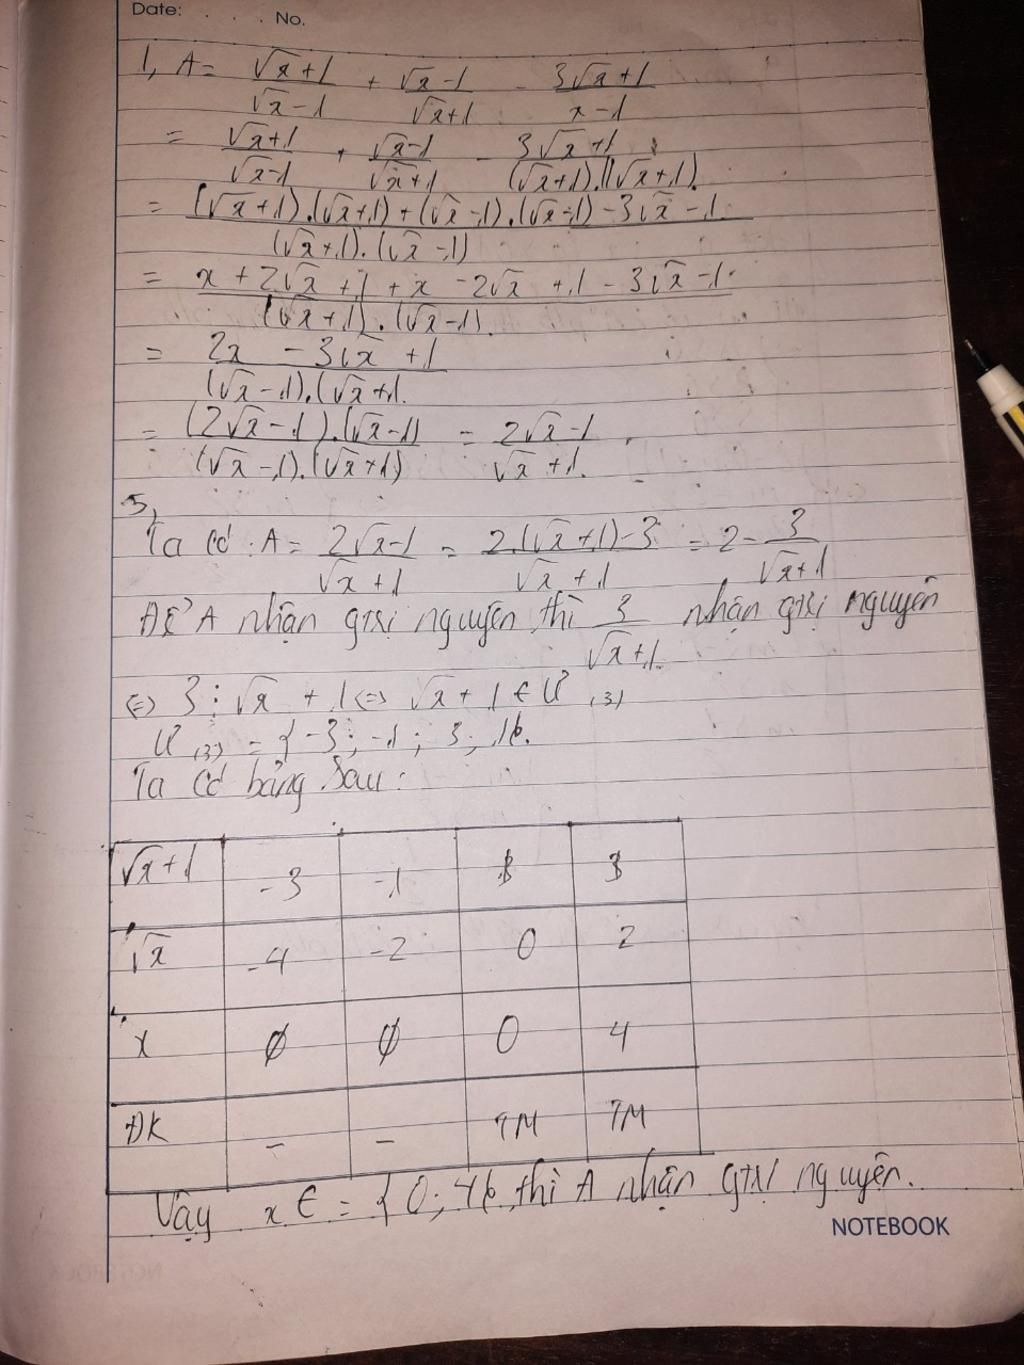 Date: . . . . No.
1, A = (√x+1)/(√x-1) + (√x-1)/(√x+1) - (3√x+1)/(x-1)
= (√x+1)/(√x-1) + (√x-1)/(√x+1) - (3√x+1)/((√x+1).(√x+1).)
= ((√x+1).(√x+1)+(√x-1).(√x-1)-3√x-1)/((√x+1).(√x-1))
= (x+2√x+1+x-2√x+1-3√x-1)/((√x+1).(√x-1).)
= (2x-3√x+1)/((√x-1).(√x+1.)
= ((2√x-1).(√x-1))/((√x-1).(√x+1)) = (2√x-1)/(√x+1.)
5,
Ta có: A = (2√x-1)/(√x+1) = (2.(√x+1)-3)/(√x+1) = 2-3/(√x+1)
Để A nhận gtrị nguyên thì 3/(√x+1) nhận gtrị nguyên
⇔ 3⋮√x+1 ⇔ √x+1 ∈ Ư(3)
Ư(3) = {-3; -1; 3; 1}.
Ta có bảng sau:
√x+1 -3 -1 1 3
√x -4 -2 0 2
x ∅ ∅ 0 4
ĐK - - TM TM
Vậy x ∈ = {0; 4}, thì A nhận gtrị nguyên.
NOTEBOOK